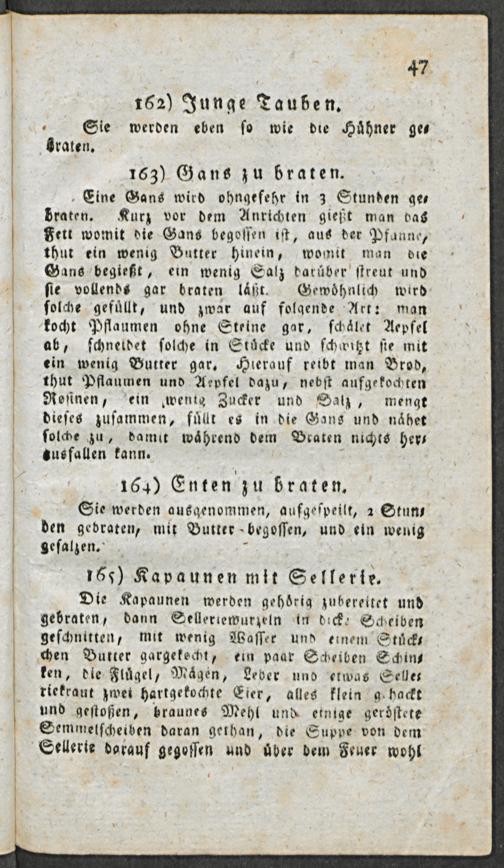 47
162) Junge Tauben.
Sie werden eben so wie die Hühner ge⸗
braten.
163) Gans zu braten.
Eine Gans wird ohngefehr in 3 Stunden ge⸗
braten. Kurz vor dem Anrichten gießt man das
Fett womit die Gans begossen ist, aus der Pfanne,
thut ein wenig Butter hinein, womit man die
Gans begießt, ein wenig Salz darüber streut und
sie vollends gar braten läßt. Gewöhnlich wird
solche gefüllt, und zwar auf folgende Art: man
kocht Pflaumen ohne Steine gar, schälet Aepfel
ab, schneidet solche in Stücke und schwitzt sie mit
ein wenig Butter gar. Hierauf reibt man Brod,
thut Pflaumen und Aepfel dazu, nebst aufgekochten
Rosinen, ein wenig Zucker und Salz, mengt
dieses zusammen, füllt es in die Gans und nähet
solche zu, damit während dem Braten nichts her⸗
ausfallen kann.
164) Enten zu braten.
Sie werden ausgenommen, aufgespeilt, 2 Stun⸗
den gebraten, mit Butter begossen, und ein wenig
gesalzen.
165) Kapaunen mit Sellerie.
Die Kapaunen werden gehörig zubereitet und
gebraten, dann Selleriewurzeln in dicke Scheiben
geschnitten, mit wenig Wasser und einem Stück⸗
chen Butter gargekocht, ein paar Scheiben Schin⸗
ken, die Flügel, Mägen, Leber und etwas Selle⸗
riekraut zwei hartgekochte Eier, alles klein gehackt
und gestoßen, braunes Mehl und einige geröstete
Semmelscheiben daran gethan, die Suppe von dem
Sellerie darauf gegossen und über dem Feuer wohl